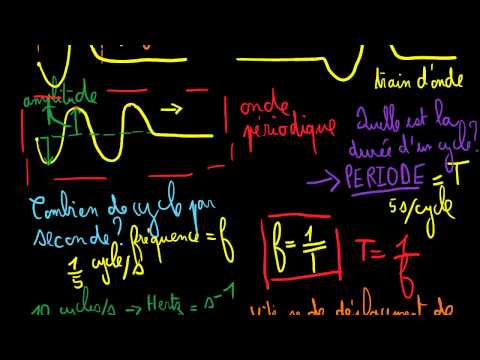 train d'onde
amplitude
onde
périodique
Quelle est la
durée d'un cycle?
→ PERIODE = T
5s/cycle
Combien de cycle par
seconde? fréquence = f
1/5 cycle/s
f = 1/T
T = 1/f
10 cycles/s → Hertz = s-1
de déplacement de